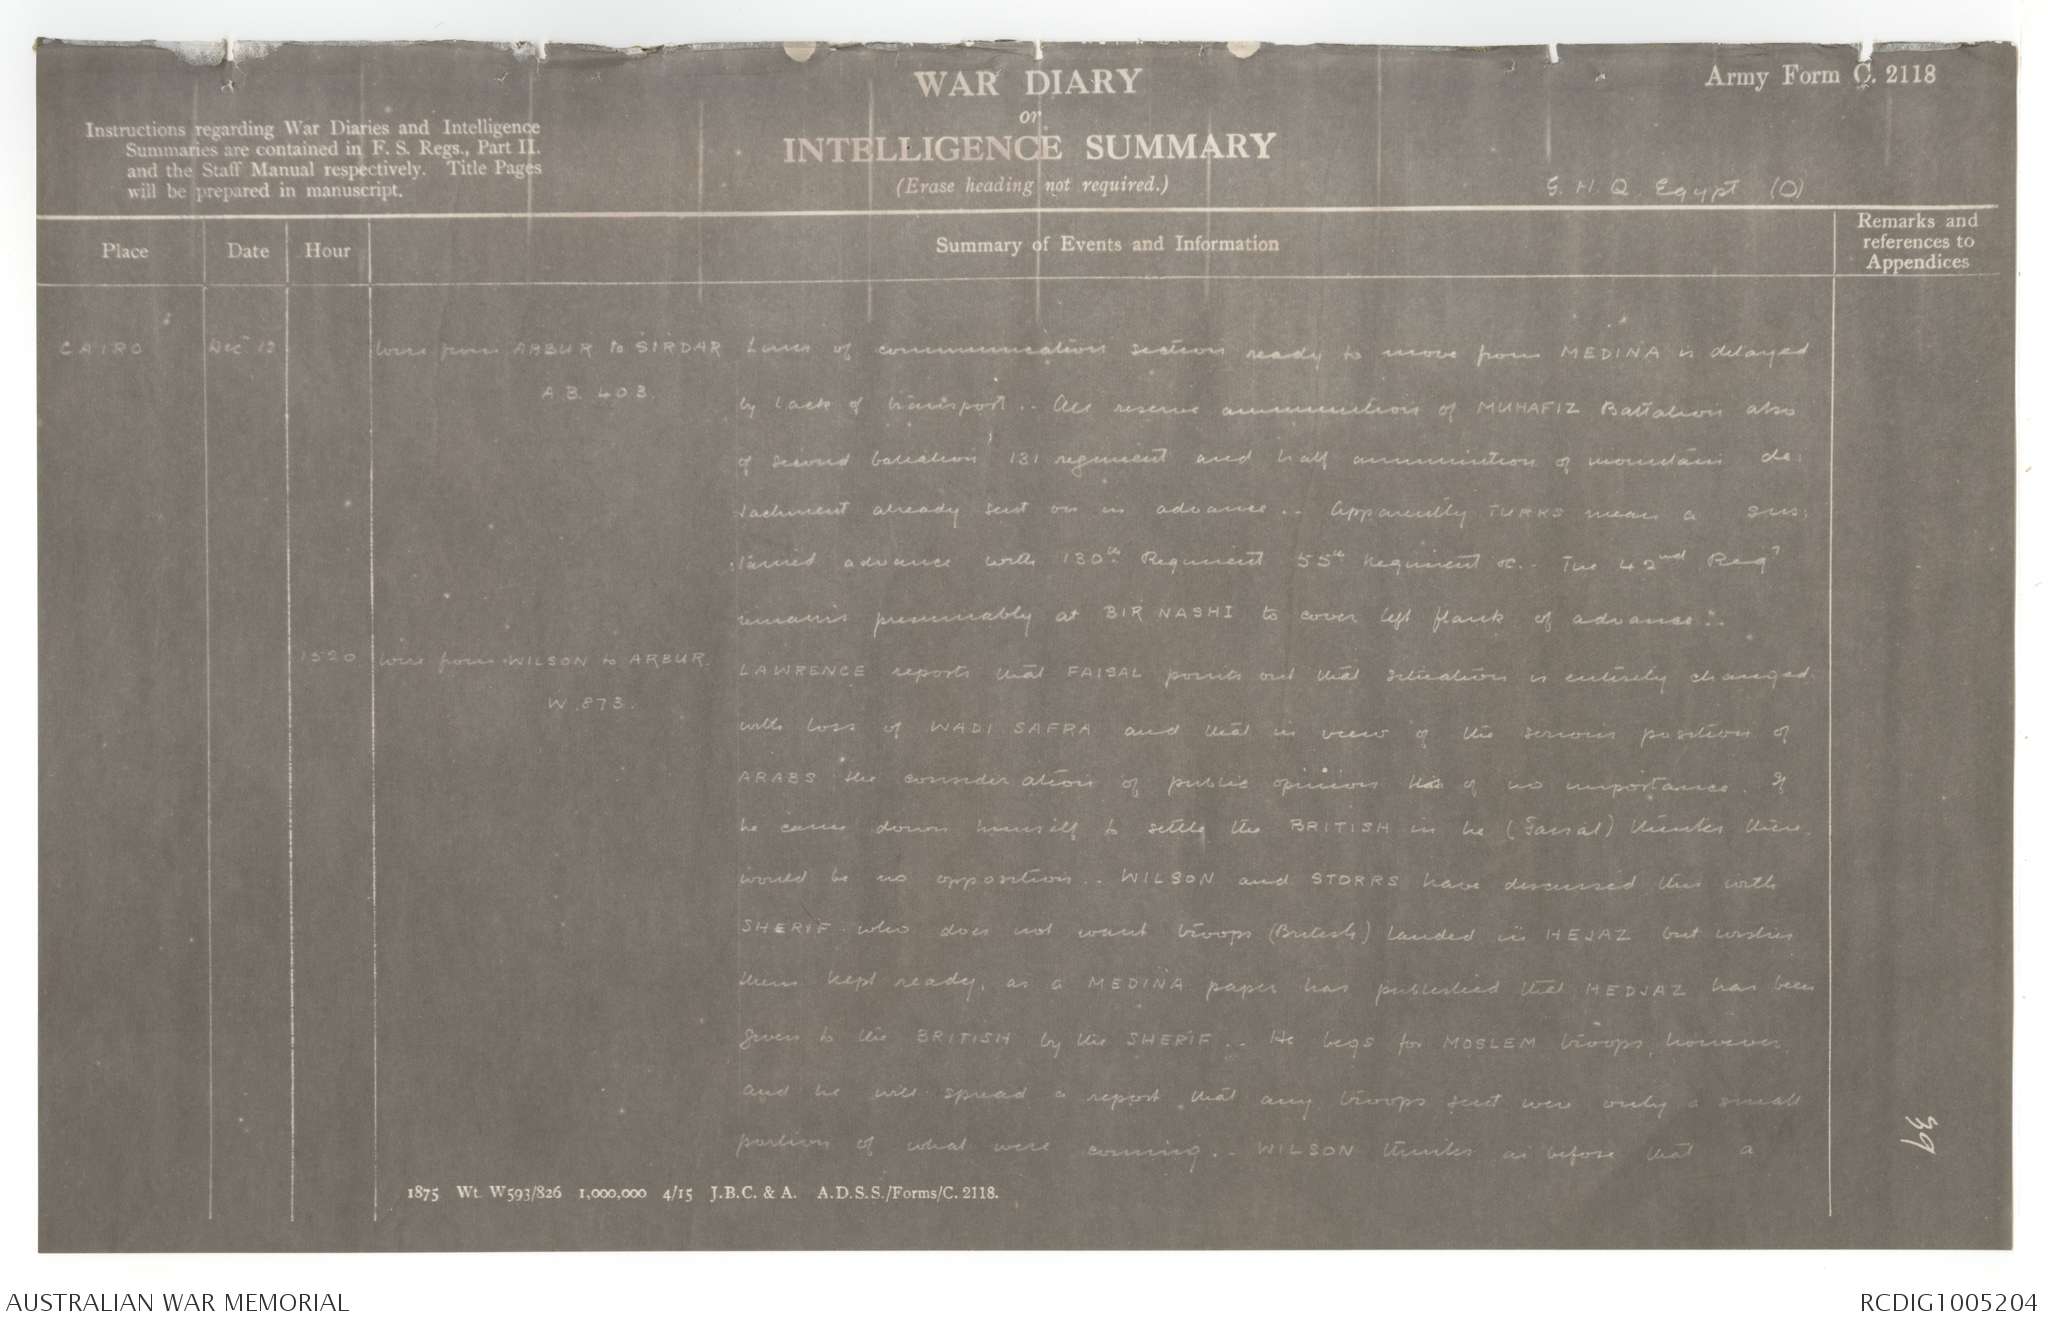 WAR DIARY
or
INTELLIGENCE SUMMARY
(Erase heading not required.)
Army Form C. 2118
Instructions regarding War Diaries and Intelligence
Summaries are contained in F. S. Regs., Part II.
and the Staff Manual respectively. Title Pages
will be prepared in manuscript.
G. H. Q. Egypt (O)
Place
Date
Hour
Summary of Events and Information
Remarks and
references to
Appendices
CAIRO
Decr 12
Wire from ARBUR to SIRDAR
A.B. 403.
Lines of communication section ready to move from MEDINA is delayed
by lack of transport .. All reserve ammunition of MUHAFIZ Battalion also
of second battalion 131 regiment and half ammunition of mountain de:
tachment already sent on in advance .. Apparently TURKS mean a sus:
:tained advance with 130th Regiment 55th Regiment &c. - The 42nd Regt
remains presumably at BIR NASHI to cover left flank of advance :.
1520
Wire from WILSON to ARBUR.
W.873.
LAWRENCE reports that FAISAL points out that situation is entirely changed
with loss of WADI SAFRA and that in view of the serious position of
ARABS the consideration of public opinion is of no importance. If
he came down himself to settle the BRITISH in he (Faisal) thinks there
would be no opposition .. WILSON and STORRS have discussed this with
SHERIF who does not want troops (British) landed in HEJAZ but wishes
them kept ready, as a MEDINA paper has published that HEDJAZ has been
given to the BRITISH by the SHERIF .. He begs for MOSLEM troops, however,
and he will spread a report that any troops sent were only a small
portion of what were coming .. WILSON thinks as before that a
39
1875 Wt. W593/826 1,000,000 4/15 J.B.C. & A. A.D.S.S./Forms/C. 2118.
AUSTRALIAN WAR MEMORIAL
RCDIG1005204